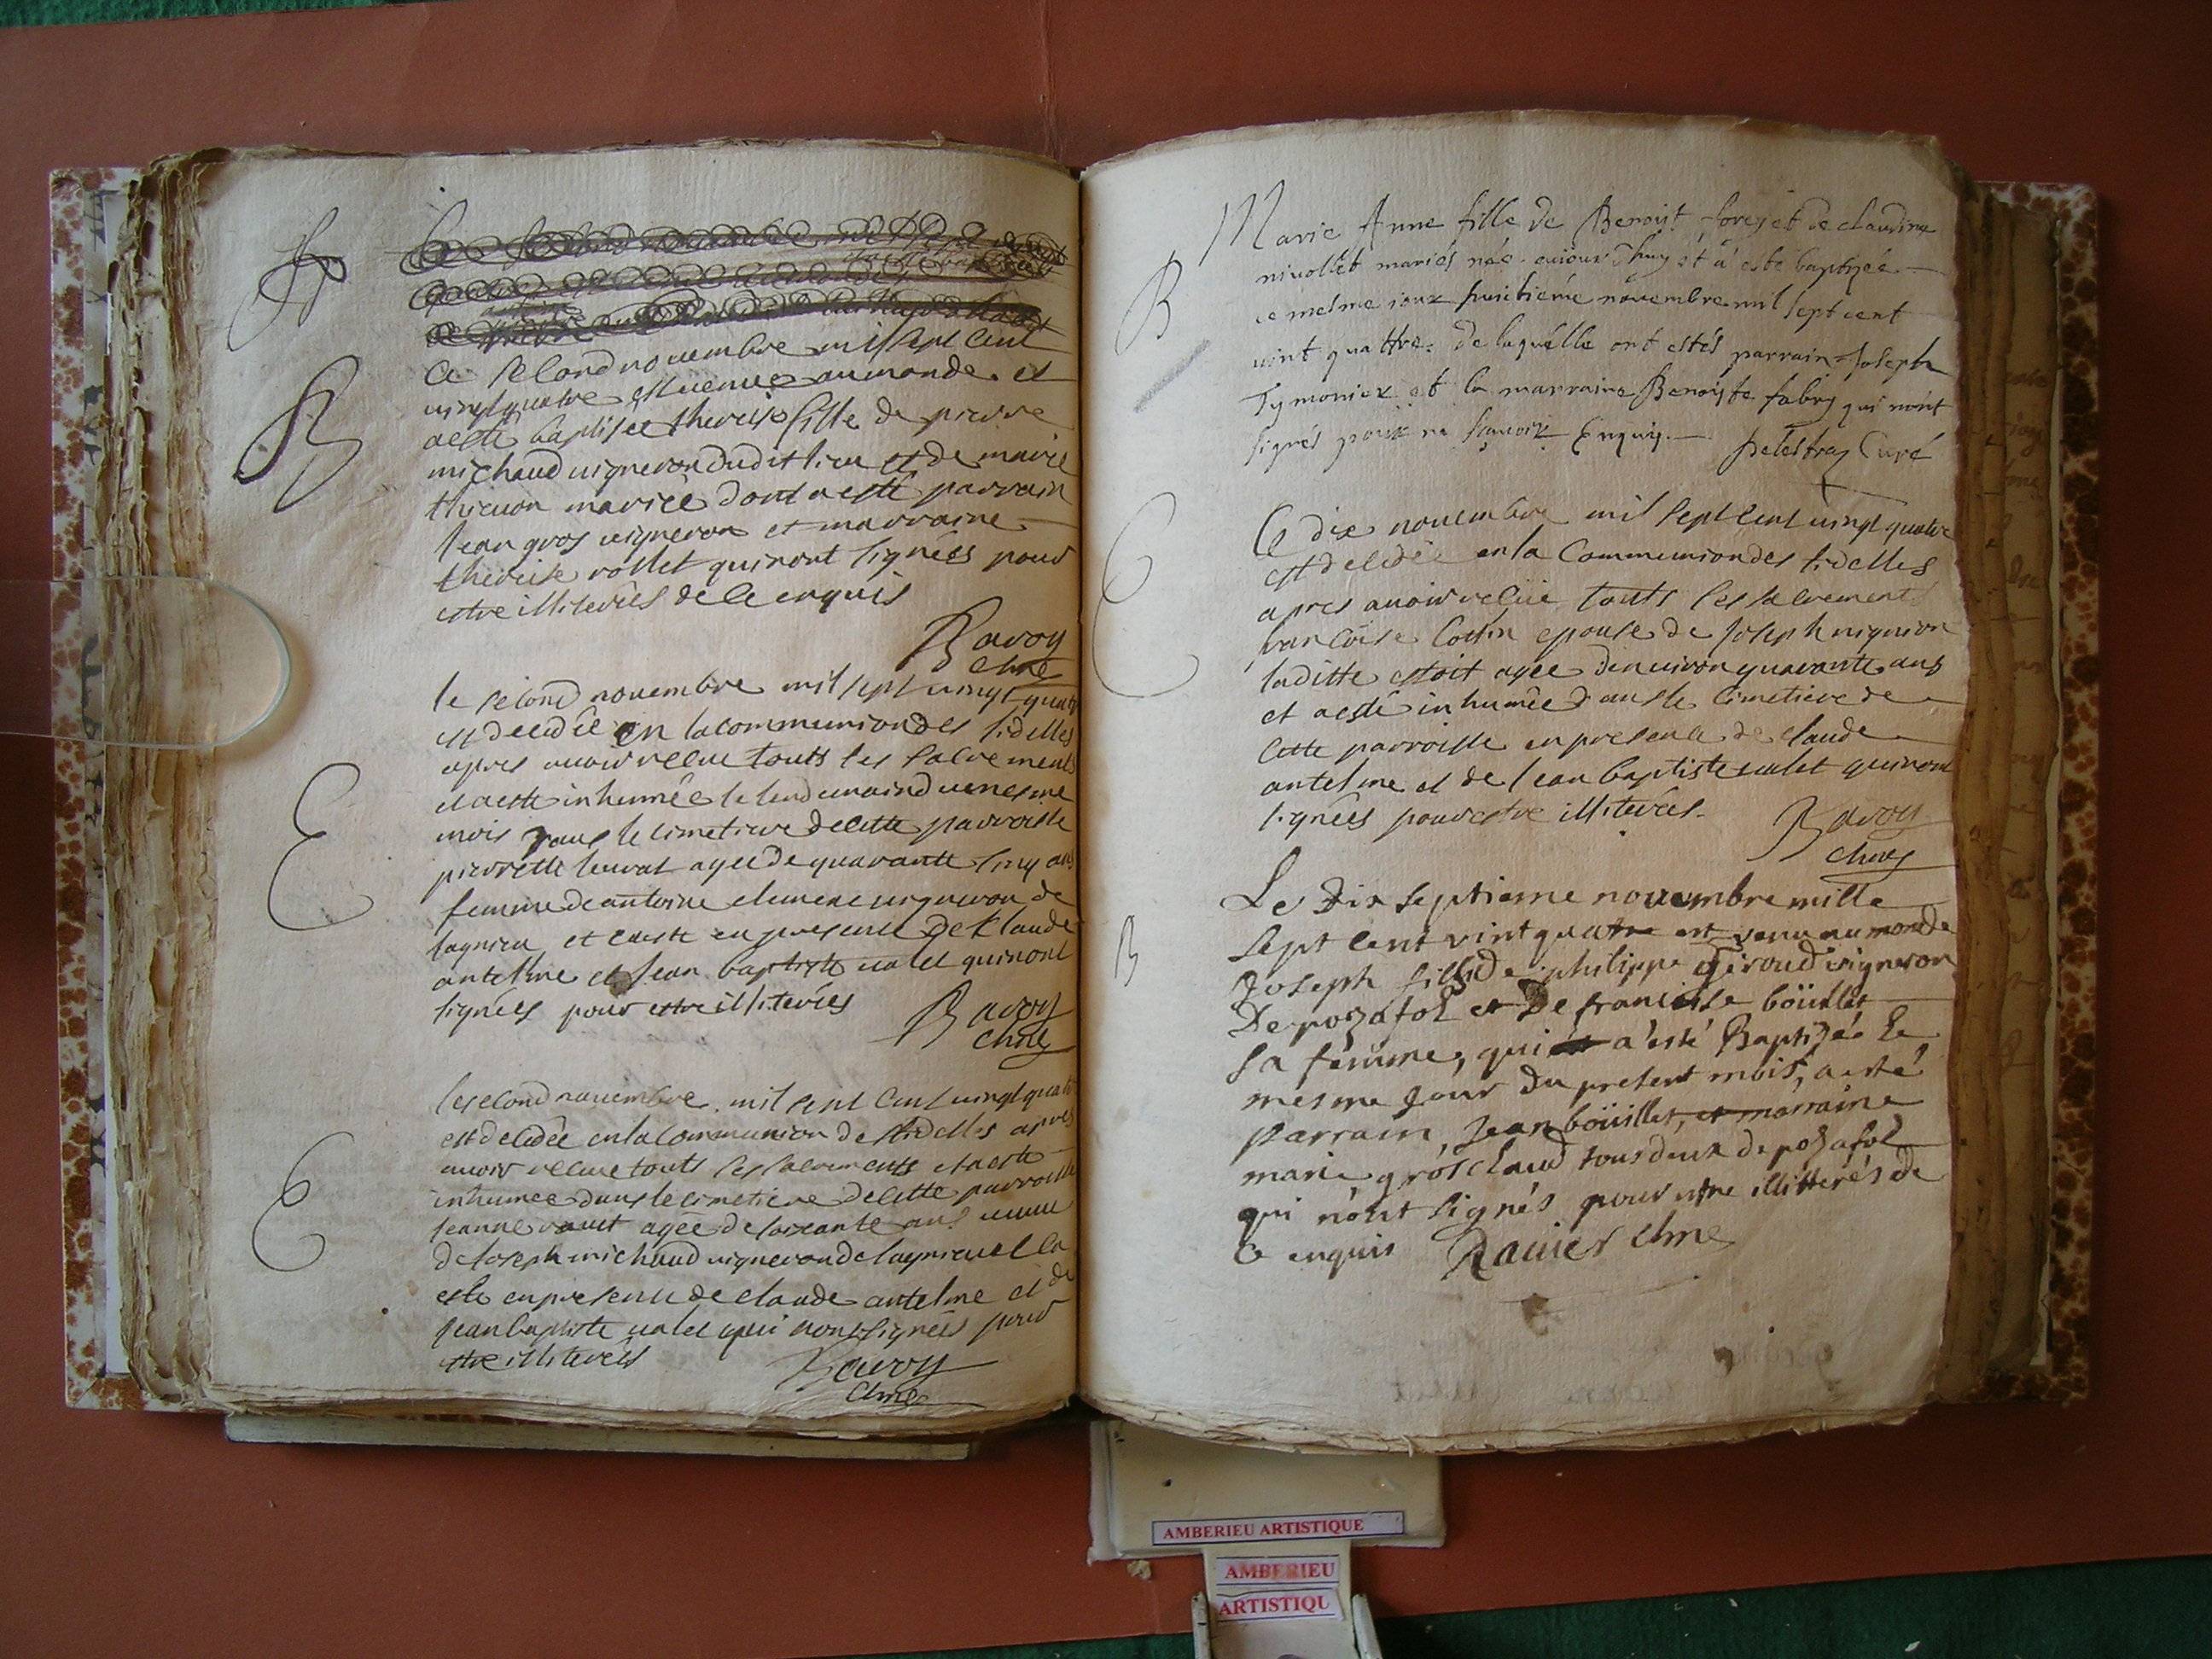 B
Ce second novembre mil sept cent
vingt quatre est venue au monde et
a esté baptisée therese fille de pierre
michaud vigneron dudit lieu et de marie
mariée dont a esté parrain
Jean gros vigneron et marraine
therese rollet qui n'ont signées pour
estre illiterées de ce enquis
Ravoy
le second novembre mil sept vingt quatre
est decedée en la communion des fidelles
apres avoir recue touts les sacrements
et a esté inhumée le lendemain du mesme
mois dans le cimetiere de cette parroisse
pierrette agée de quarante cinq ans
femme de antoine vigneron de
lagnieu et en presence de Claude
antelme et Jean baptiste valet qui n'ont
signées pour estre illiterées
Ravoy
E
le second novembre mil sept cent vingt quatre
est decedée en la communion des fidelles apres
avoir recue touts les sacrements et a esté
inhumée dans le cimetiere de cette parroisse
Jeanne agée de soixante ans
de Joseph michaud vigneron de lagnieu et ca
esté en presence de claude antelme et de
Jean baptiste valet qui n'ont signées pour
estre illiterées
Ravoy
E
Marie Anne fille de Benoist forey et de claudine
nivollet mariés née aujourd'huy et a esté baptizée
ce mesme jour huictiéme novembre mil sept cent
vint quattre. de laquélle ont estés parrain Joseph
Tymonier et la marraine Benoiste fabry qui n'ont
signés pour ne sçavoir Enquis. Delestraz Curé
B
Ce dix novembre mil sept cent vingt quatre
est decedée en la Communion des fidelles
apres avoir recüe touts les sacrements
francoise epouse de Joseph
laditte estoit agée d'environ quarante ans
et a esté inhumée dans le cimetiere de
cette parroisse en presence de claude
antelme et de Jean baptiste valet qui n'ont
signées pour estre illiterées.
Ravoy
Le Dix septieme novembre mille
sept cent vint quatre est venu au monde
Joseph fils de philippe Giroud vigneron
De pozafol et De francoise boüillet
sa femme, qui a esté Baptizée le
mesme Jour Du present mois, a esté
parrain, Jean boüillet, et marraine
marie grosclaud tous deux de pozafol
qui n'ont signés pour estre illitterés de
ce enquis Ravier
B
AMBERIEU ARTISTIQUE
AMBERIEU
ARTISTIQU